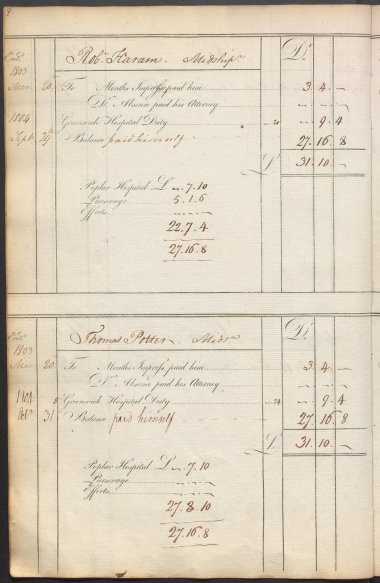 Robt. Haram. Midship Dr.
1803
Mar. 20. To Months Impress paid him 3. 4. ~
Do. Absence paid his Attorney
1804 Greenwich Hospital Duty 20 ~ 9. 4
Sept. Balance paid himself 27. 16. 8
£ 31. 10. ~
Poplar Hospital £ ~ 7. 10
Pursorage 5. 1. 6
Effects
22. 7. 4
27. 16. 8
Thomas Potter. Mids Dr.
1803
Mar. 20. To Months Impress paid him 3. 4. ~
Do. Absence paid his Attorney
1804 Greenwich Hospital Duty 24 ~ 9. 4
31 Balance paid himself 27. 16. 8
£ 31. 10. ~
Poplar Hospital £ ~ 7. 10
Pursorage
Effects
27. 8. 10
27. 16. 8